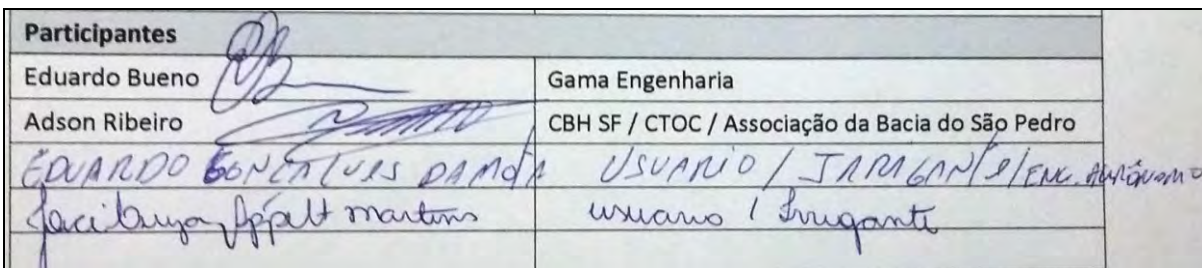 Participantes
Eduardo Bueno Gama Engenharia
Adson Ribeiro CBH SF / CTOC / Associação da Bacia do São Pedro
EDUARDO GONÇALVES DAMOTA USUARIO / / ENG. AGRÔNOMO
martins usuario / Irrigante